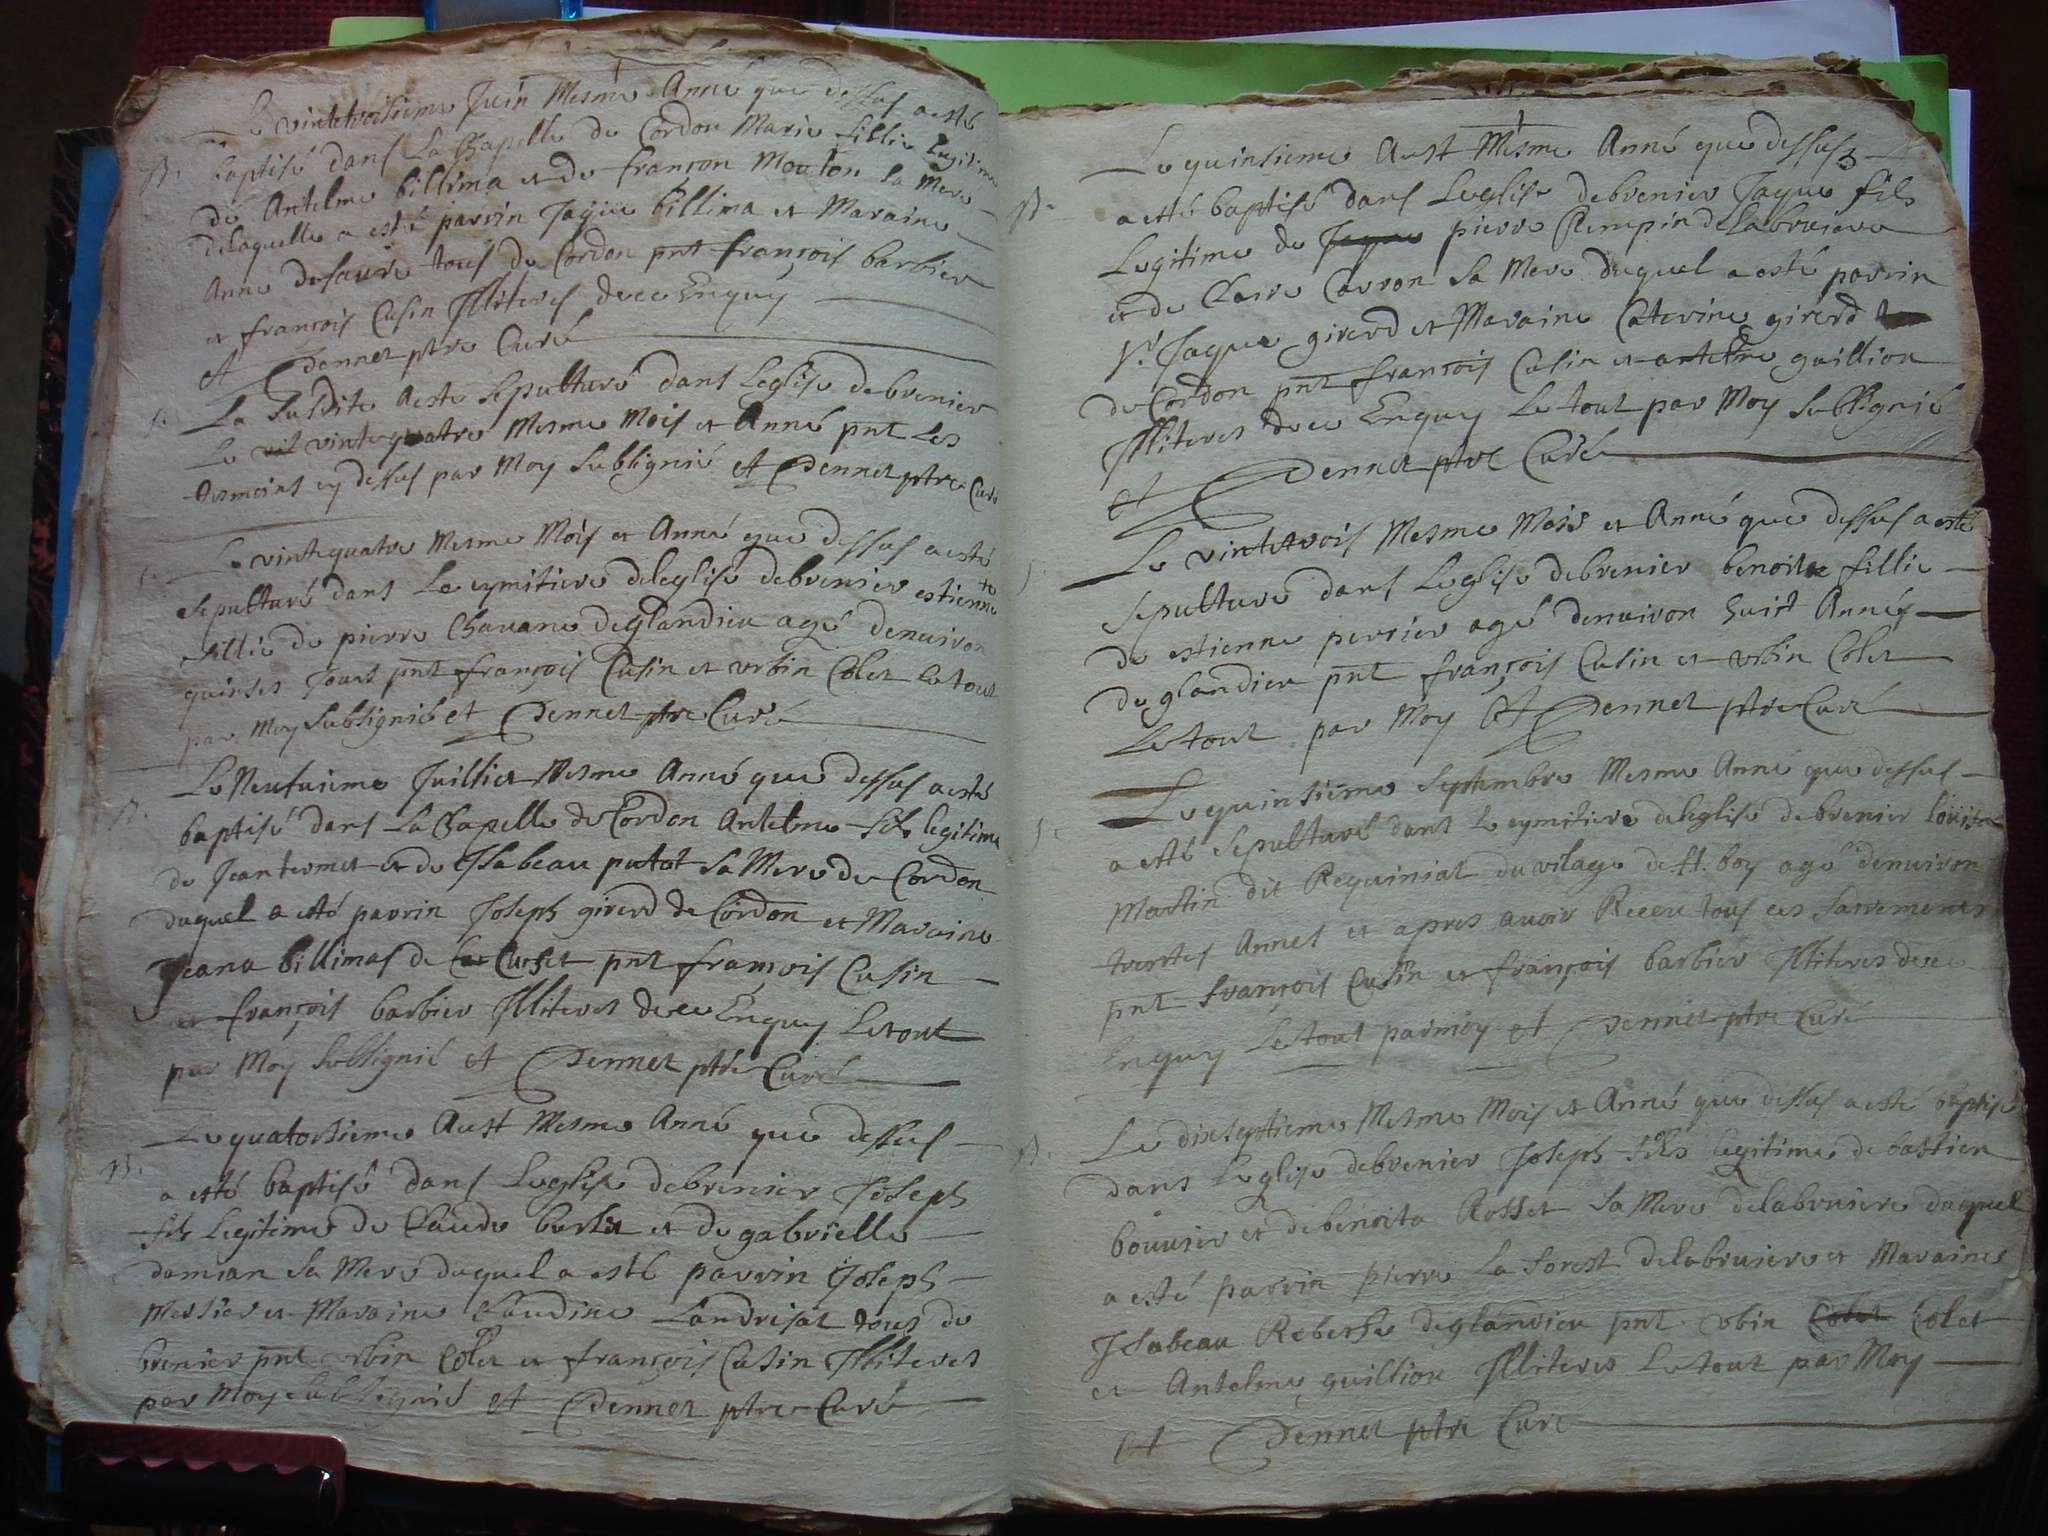 Le vintetroisieme Juin Mesme Anné que dessus a esté
B. baptisé dans La Chapelle de Cordon Marie fillie Legitime
de Antelme billima et de françon Mouton sa Mere
delaquelle a esté parrin Jaque billima et Maraine
Anne defaure tous de Cordon pnt françois barbier
et françois Cusin Illiteres dece Enquy
et Dennet ptre Curé
S. La Susdite a esté Sepulturé dans Leglise debrenier
Le vintequatre Mesme Mois et Anné pnt Les
tesmoins cy dessus par Moy Subsignié et Dennet ptre Curé
S. Le vintequatre Mesme Mois et Anné que dessus a esté
Sepulturé dans Le cymitiere deleglise debrenier estienne
fillie de pierre Chavane deglandieu agé denuiron
quinses Jours pnt françois Cusin et vrbin Colet Le tout
par Moy Subsignié et Dennet ptre Curé
Le Neufuieme Juillet Mesme Anné que dessus a esté
B. baptisé dans La Chapelle de Cordon Antelme fils legitime
de Jean termet et de Isabeau putot sa Mere de Cordon
duquel a esté parrin Joseph girerd de Cordon et Maraine
Jeana billimas de Cuset pnt françois Cusin
et françois barbier Illiteres dece Enquy Le tout
par Moy Subsignié et Dennet ptre Curé
Le quatorsieme Aust Mesme Anné que dessus
B. a esté baptisé dans Leglise debrenier Joseph
fils Legitime de Claude berlie et de gabrielle
damian sa Mere duquel a esté parrin Joseph
Mersier et Maraine Claudine Landrisat tous de
brenier pnt vrbin Colet et françois Cusin Illiteres
par Moy Subsignié et Dennet ptre Curé
Le quinsieme Aust Mesme Anné que dessus
B. a esté baptisé dans Leglise debrenier Jaque fils
Legitime de Jaque pierre Pempin delabruiere
et de Claire Carron sa Mere duquel a esté parrin
Sr. Jaque girerd et Maraine Caterine girerd
de Cordon pnt françois Cusin et antelme guillion
Illiteres dece Enquy Le tout par Moy Subsignié
et Dennet ptre Curé
S. Le vintetrois Mesme Mois et Anné que dessus a esté
Sepulturé dans Leglise debrenier benoite fillie
de estienne perrier agé denuiron huict Annés
de glandieu pnt françois Cusin et vrbin Colet
Le tout par Moy et Dennet ptre Curé
Le quinsieme Septembre Mesme Anné que dessus
S. a esté Sepulturé dans Le cymitiere deleglise debrenier Louise
Martin dit Requiniat du vilage de st. boy agé denuiron
trentes Annes et apres auoir Receu tous ces Sacrements
pnt françois Cusin et françois barbier Illiteres dece
Enquy Le tout par moy et Dennet ptre Curé
B. Le dixseptieme Mesme Mois et Anné que dessus a esté baptisé
dans Leglise debrenier Joseph fils legitime de bastien
bouuier et debenoita Rosset sa Mere delabruiere duquel
a esté parrin pierre La forest delabruiere et Maraine
Isabeau Reberse deglandieu pnt vrbin Colet Colet
et Antelme guillion Illiteres Le tout par Moy
et Dennet ptre Curé